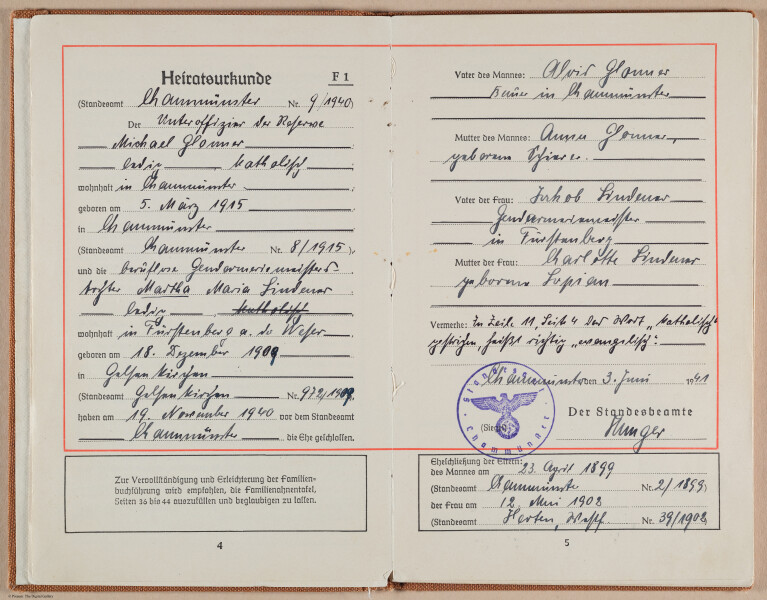 Heiratsurkunde F 1
(Standesamt Chammünster Nr. 9/1940)
Der Unteroffizier der Reserve
Michael Glonner
ledig katholisch
wohnhaft in Chammünster
geboren am 5. März 1915
in Chammünster
(Standesamt Chammünster Nr. 8/1915),
und die berufslose Gendarmeriemeisters-
tochter Martha Maria Lindener
ledig katholisch
wohnhaft in Fürstenberg a. d. Weser
geboren am 18. Dezember 1909
in Gelsenkirchen
(Standesamt Gelsenkirchen Nr. 972/1909,
haben am 19. November 1940 vor dem Standesamt
Chammünster die Ehe geschlossen.
Zur Vervollständigung und Erleichterung der Familien-
buchführung wird empfohlen, die Familienahnentafel,
Seiten 36 bis 44 auszufüllen und beglaubigen zu lassen.
4
Vater des Mannes: Alois Glonner
Bauer in Chammünster
Mutter des Mannes: Anna Glonner,
geborene Schierer.
Vater der Frau: Jakob Lindener
Gendarmeriemeister
in Fürstenberg
Mutter der Frau: Charlotte Lindener
geborene Sopian
Vermerke: In Zeile 11, Seite 4 das Wort "katholisch"
gestrichen, heißt richtig "evangelisch".
Chammünster den 3. Juni 1941
Der Standesbeamte
(Siegel)
Standesamt
Chammünster
Eheschließung der Eltern:
des Mannes am 23. April 1899
(Standesamt Chammünster Nr. 2/1899)
der Frau am 12. Mai 1908
(Standesamt Herten, Westf. Nr. 39/1908
5